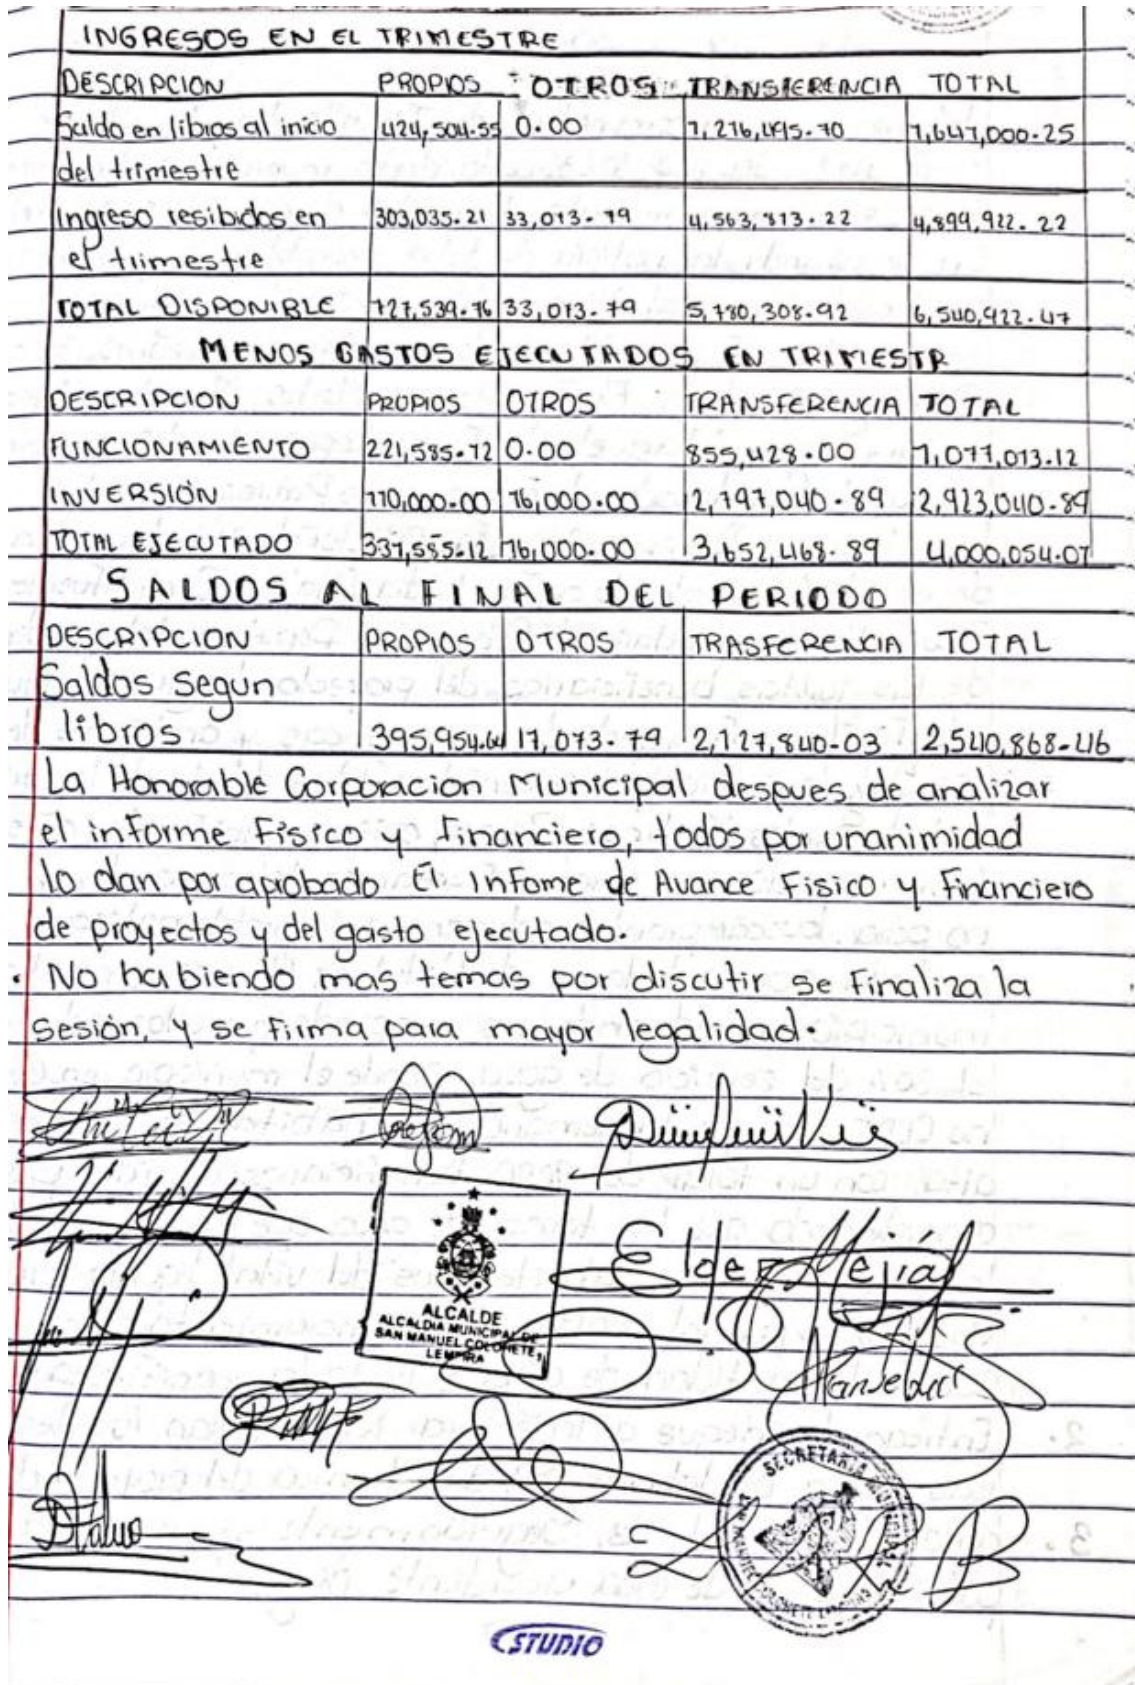 INGRESOS EN EL TRIMESTRE
DESCRIPCION PROPIOS OTROS TRANSFERENCIA TOTAL
Saldo en libros al inicio 424,504.55 0.00 1,216,495.70 1,641,000.25
del trimestre
Ingreso resibidos en 303,035.21 33,073.79 4,563,813.22 4,899,922.22
el trimestre
TOTAL DISPONIBLE 727,539.76 33,073.79 5,780,308.92 6,540,922.47
MENOS GASTOS EJECUTADOS EN TRIMESTR
DESCRIPCION PROPIOS OTROS TRANSFERENCIA TOTAL
FUNCIONAMIENTO 221,585.12 0.00 855,428.00 1,077,013.12
INVERSIÓN 110,000.00 16,000.00 2,797,040.89 2,923,040.89
TOTAL EJECUTADO 331,585.12 16,000.00 3,652,468.89 4,000,054.01
SALDOS AL FINAL DEL PERIODO
DESCRIPCION PROPIOS OTROS TRASFERENCIA TOTAL
Saldos según
libros 395,954.64 17,073.79 2,127,840.03 2,540,868.46
La Honorable Corporación Municipal despues de analizar
el informe Físico y financiero, todos por unanimidad
lo dan por aprobado El Infome de Avance Fisico y Financiero
de proyectos y del gasto ejecutado.
. No habiendo mas temas por discutir se finaliza la
sesión, y se firma para mayor legalidad.
Elder Mejía
ALCALDE
ALCALDIA MUNICIPAL DE
SAN MANUEL COLOHETE,
LEMPIRA
SECRETARIA MUNICIPAL
SAN MANUEL COLOHETE LEMPIRA
STUDIO